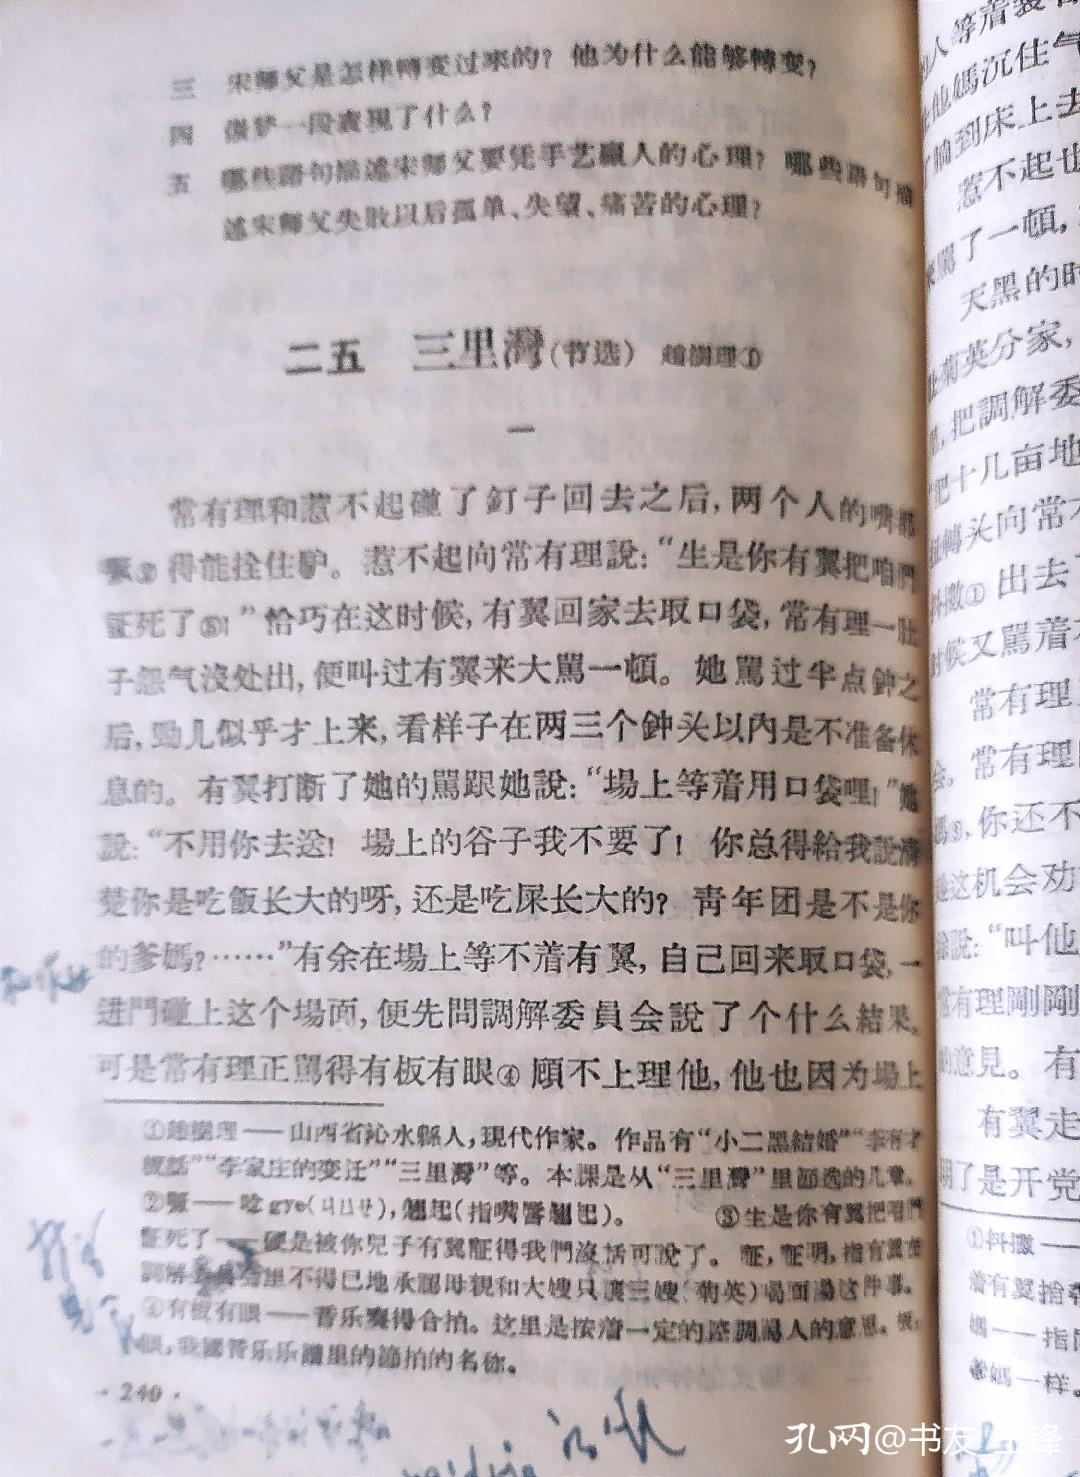 三 宋师父是怎样轉变过来的？他为什么能够轉变？
四 做梦一段表現了什么？
五 哪些語句描述宋师父要凭手艺贏人的心理？哪些語句描
述宋师父失敗以后孤单、失望、痛苦的心理？
二五 三里灣（节选） 趙樹理①
一
常有理和惹不起碰了釘子回去之后，两个人的嘴都
②得能拴住驴。惹不起向常有理說：“生是你有翼把咱們
証死了③！”恰巧在这时候，有翼回家去取口袋，常有理一肚
子怨气沒处出，便叫过有翼来大罵一頓。她罵过半点鈡之
后，勁儿似乎才上来，看样子在两三个鈡头以內是不准备休
息的。有翼打断了她的罵跟她說：“場上等着用口袋哩！”她
說：“不用你去送！場上的谷子我不要了！你总得給我說清
楚你是吃飯长大的呀，还是吃屎长大的？青年团是不是你
的爹媽？……”有余在場上等不着有翼，自己回来取口袋，一
进門碰上这个場面，便先問調解委員会說了个什么結果。
可是常有理正罵得有板有眼④顧不上理他，他也因为場上
①趙樹理——山西省沁水縣人，現代作家。作品有“小二黑結婚”“李有才
板話”“李家庄的变迁”“三里灣”等。本課是从“三里灣”里節选的几章。
②——唸 gye（ㄐㄩㄝ），翹起（指嘴唇翹起）。 ③生是你有翼把咱們
証死了——硬是被你兒子有翼証得我們沒話可說了。証，証明，指有翼在
調解委員会里不得已地承認母親和大嫂只讓三嫂（菊英）喝面湯这件事。
④有板有眼——音乐奏得合拍。这里是按着一定的腔調罵人的意思。板、
眼，我國音乐乐譜里的節拍的名称。
· 240 ·
人等着裝
他媽沉住气
到床上去
惹不起也
鬧了一頓，
天黑的时
菊英分家，
，把調解委
把十几亩地
轉头向常有
抖擻①出去
时候又罵着
常有理
常有理
媽③，你还不
这机会劝
說：“叫他
常有理剛剛
的意見。有
有翼走
明了是开党
①抖擻——
着有翼抬
媽——指
媽一样。
孔网@书友_王锋